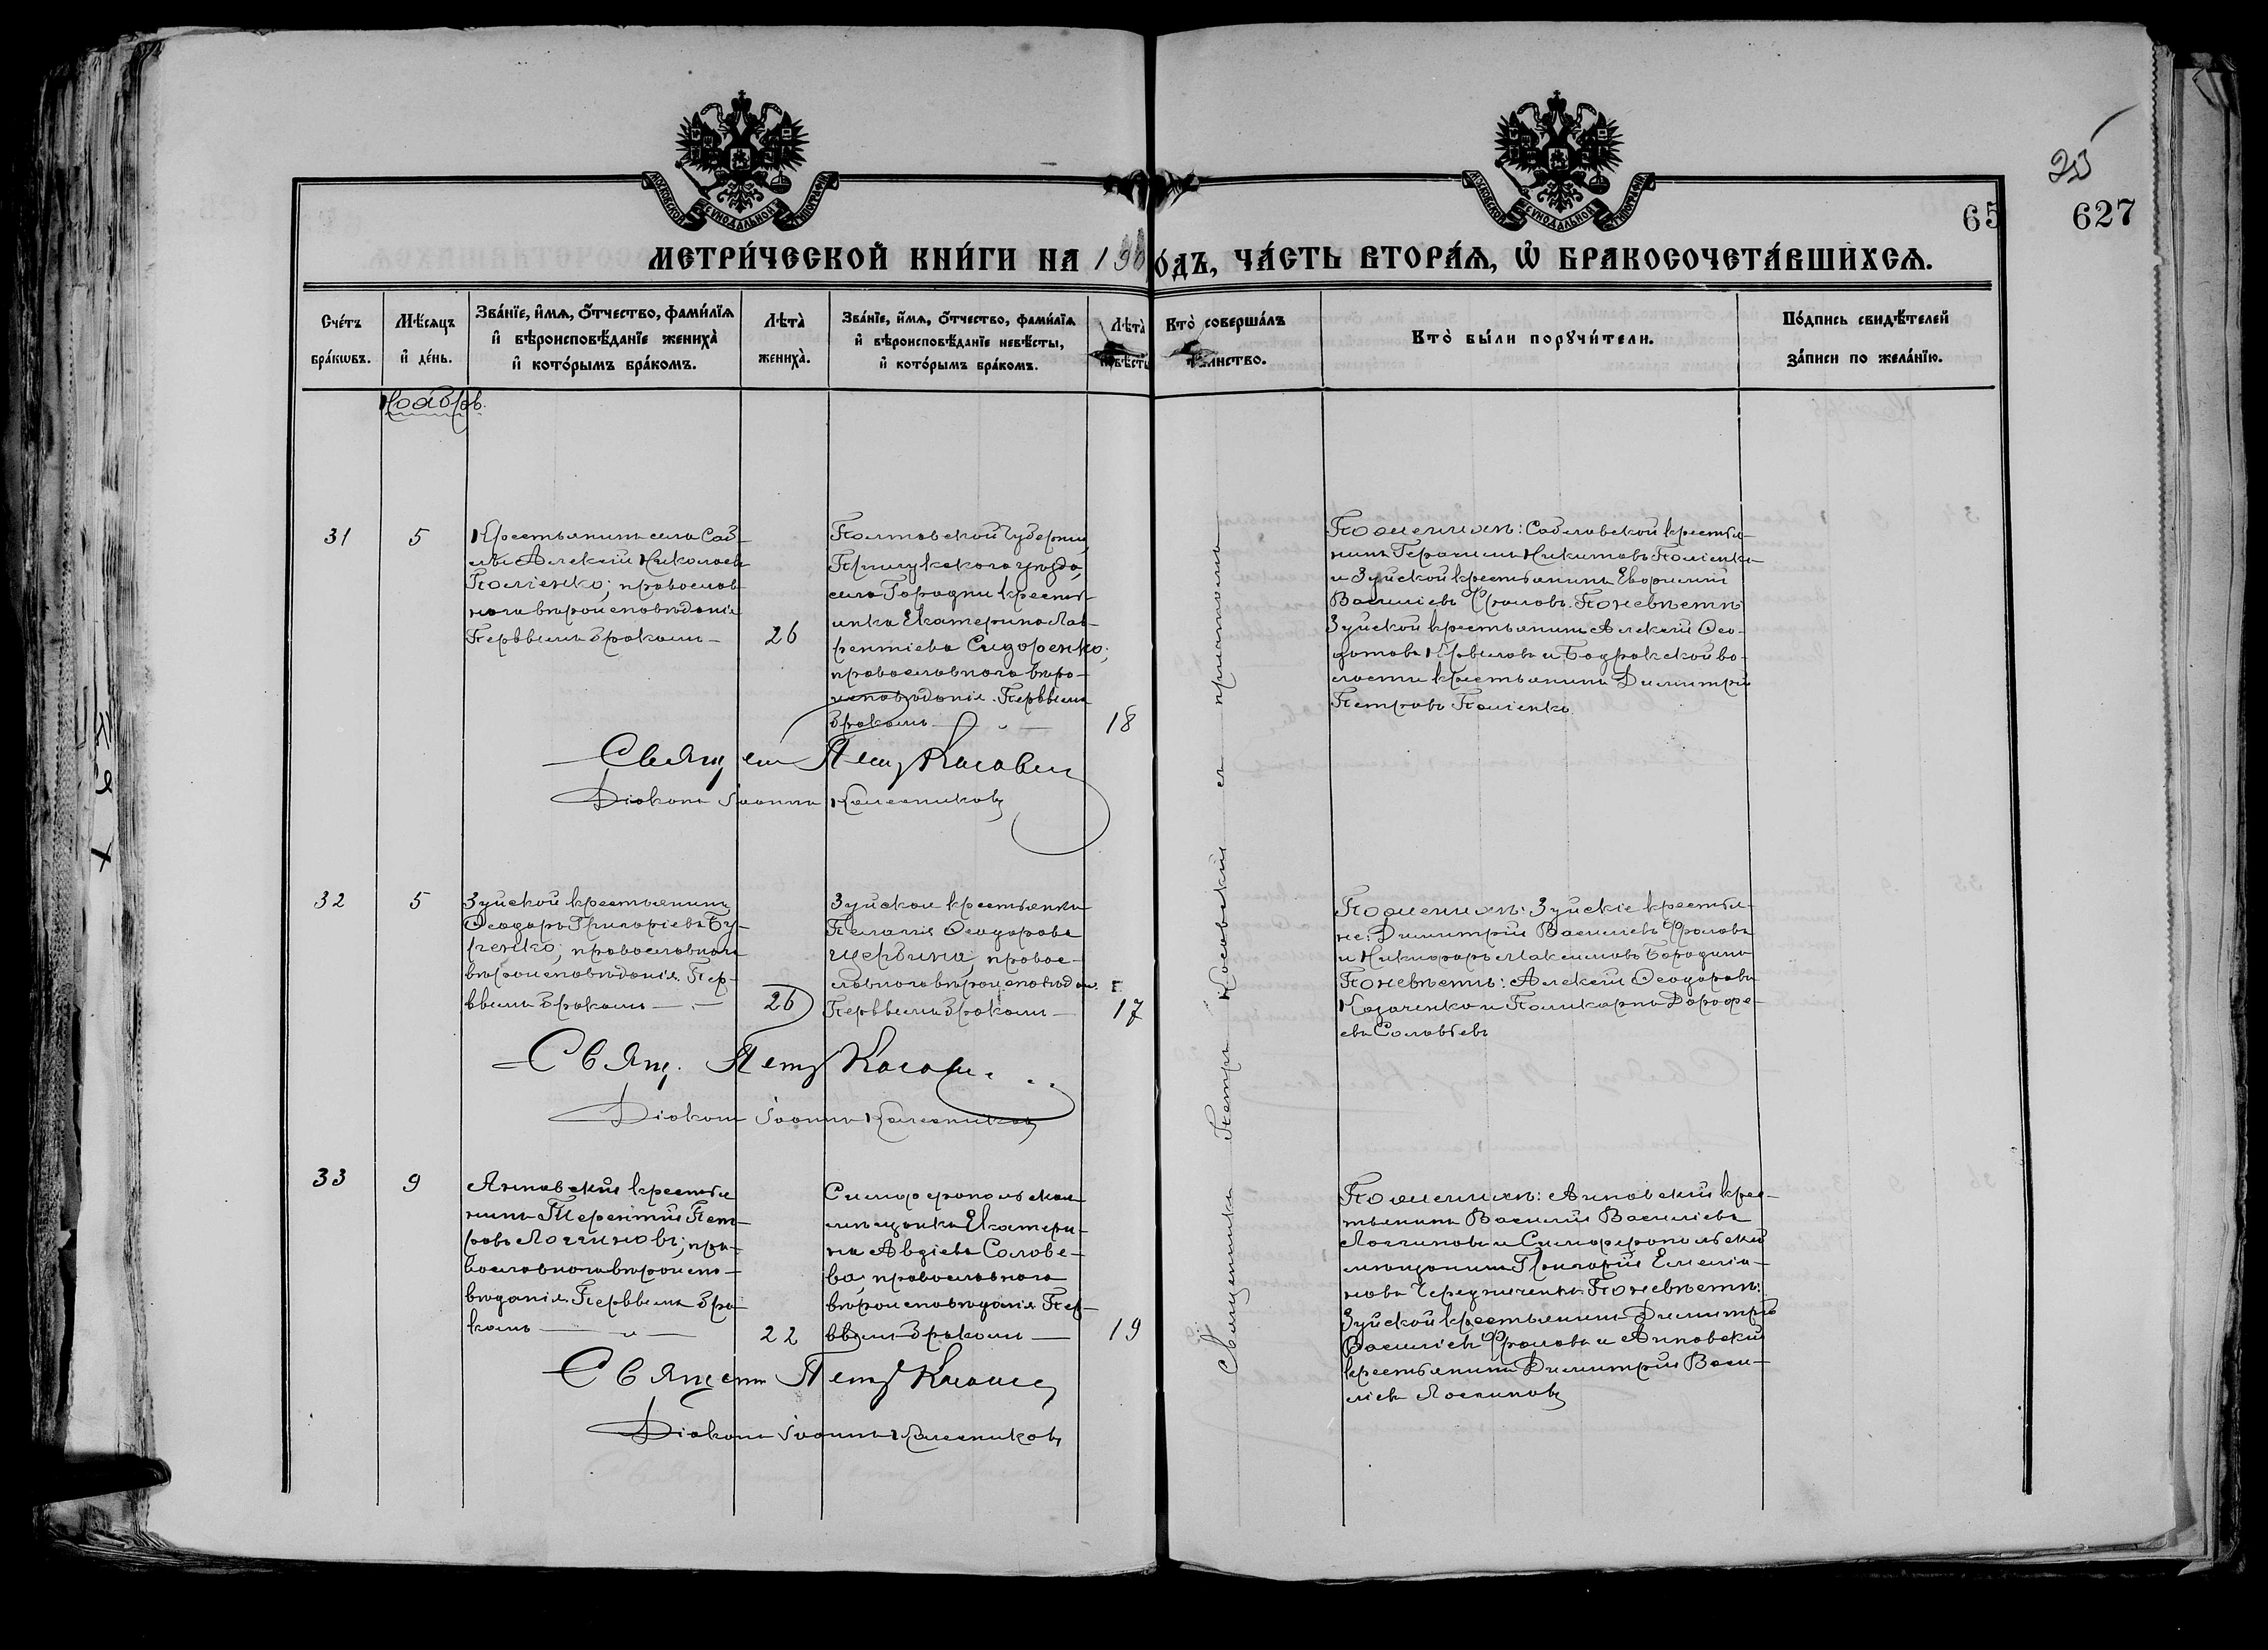 МОСКОВСКОЙ СѴНОДАЛЬНОЙ ТИПОГРАФІИ
МОСКОВСКОЙ СѴНОДАЛЬНОЙ ТИПОГРАФІИ
25
65
627
МЕТРИ́ЧЕСКОЙ КНИ́ГИ НА 190 ОДЪ, ЧА́СТЬ ВТОРА́Ѧ, Ѡ БРАКОСОЧЕТА́ВШИХСѦ.
Сче́тъ бра́кѡвъ.
Мѣ́сѧцъ и҆ де́нь.
Зва́нїе, и҆́мѧ, ѻ҆́тчество, фами́лїѧ
и҆ вѣроисповѣ́данїе жениха̀
и҆ кото́рымъ бра́комъ.
Лѣта̀ жениха̀.
Зва́нїе, и҆́мѧ, ѻ҆́тчество, фами́лїѧ
и҆ вѣроисповѣ́данїе невѣ́сты,
и҆ кото́рымъ бра́комъ.
Лѣта̀
Кто̀ соверша́лъ
Кто̀ бы́ли порꙋчи́тели.
По́дпись свидѣ́телей
за́писи по жела́нїю.
Ноябрь.
31
5
Крестьянинъ села Саб-
лы Алексій Николаевъ
Поліенко; православ-
наго вѣроисповѣданія
Первымъ бракомъ
26
Полтавской губерніи,
Прилукскаго уѣзда,
села Городни крестья-
нка Екатерина Лав-
рентіева Сидоренко;
православнаго вѣро-
исповѣданія. Первымъ
бракомъ
18
По женихѣ: Саблавской крестья-
нинъ Герасимъ Никитовъ Поліенко
и Зуйской крестьянинъ Евфимій
Василіевъ Фроловъ. По невѣстѣ:
Зуйской крестьянинъ Алексій Ѳео-
дотовъ и Бодракской во-
лости крестьянинъ Димитрій
Петровъ Поліенко
Священ Петръ Косовск
Діаконъ Іоаннъ Колесниковъ
Священникъ Петръ Косовскій съ
32
5
Зуйской крестьянинъ
Ѳеодоръ Григоріевъ Бу-
ренко; православнаго
вѣроисповѣданія. Пер-
вымъ бракомъ
26
Зуйская крестьянка
Пелагія Ѳеодорова
Щербина, правос-
лавнаго вѣроисповѣдан.
Первымъ бракомъ
17
По женихѣ: Зуйскіе крестья-
не: Димитрій Василіевъ Фроловъ
и Никифоръ Максимовъ Бородинъ
По невѣстѣ: Алексій Ѳеодоровъ
Казаченко и Поликарпъ Дорофе-
евъ Соловьевъ
Свящ. Петръ Косов
Діаконъ Іоаннъ Колесниковъ
33
9
Аяповскій крестья
нинъ Терентій Пет-
ровъ Логгиновъ; пра-
вославнаго вѣроиспо-
вѣданія. Первымъ бра-
комъ
22
Симферопольская
мѣщанка Екатери-
на Авдіева Солове-
ва; православнаго
вѣроисповѣданія Пер-
вымъ бракомъ
19
По женихѣ: крес-
тьянинъ Василій Василіевъ
Логгиновъ и Симферопольскій
мѣщанинъ Григорій Емелія-
новъ Чередниченко. По невѣстѣ:
Зуйской крестьянинъ Димитрій
Василіевъ Фроловъ и
крестьянинъ Димитрій Васи-
ліевъ Логгиновъ
Священ Петръ Косовс
Діаконъ Іоаннъ Колесниковъ